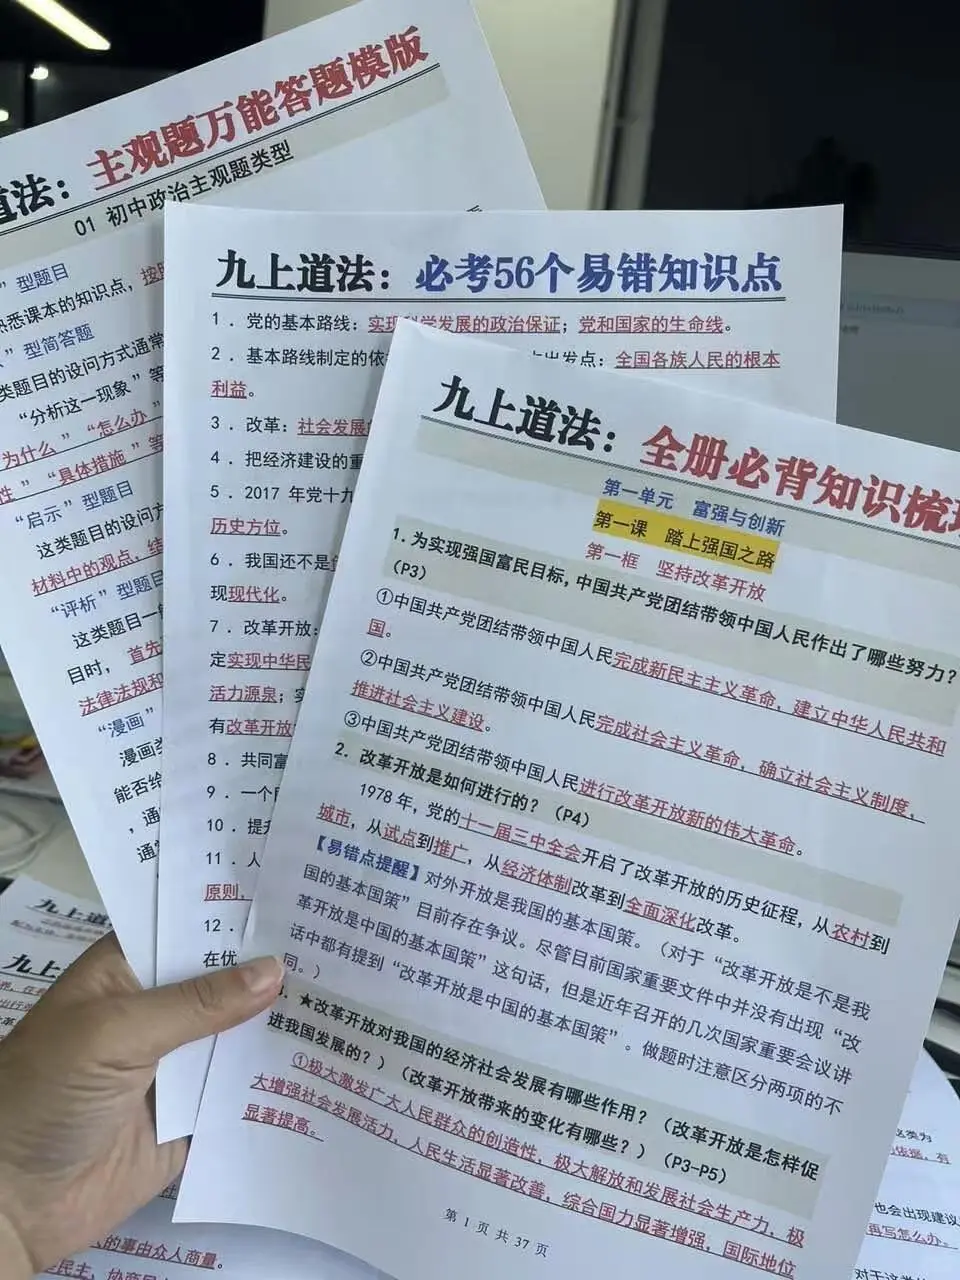 道法：主观题万能答题模版
01 初中政治主观题类型
”型题目
熟悉课本的知识点，按照
”型简答题
类题目的设问方式通常
“分析这一现象”等
为什么”“怎么办”
性”“具体措施”等
“启示”型题目
这类题目的设问方
材料中的观点，结
“评析”型题目
这类题目一
目时，首先
法律法规和
“漫画”
漫画类
能否给
，通
通常
九上道法：必考56个易错知识点
1．党的基本路线：实现科学发展的政治保证；党和国家的生命线。
2．基本路线制定的依 出发点：全国各族人民的根本
利益。
3．改革：社会发展
4．把经济建设的重
5．2017 年党十九
历史方位。
6．我国还不是
现现代化。
7．改革开放：
定实现中华民
活力源泉；实
有改革开放
8．共同富
9．一个
10．提
11．人
原则，
12．
在优
九上道法：全册必背知识梳理
第一单元 富强与创新
第一课 踏上强国之路
第一框 坚持改革开放
1.为实现强国富民目标，中国共产党团结带领中国人民作出了哪些努力？
（P3）
①中国共产党团结带领中国人民完成新民主主义革命，建立中华人民共和
国。
②中国共产党团结带领中国人民完成社会主义革命，确立社会主义制度，
推进社会主义建设。
③中国共产党团结带领中国人民进行改革开放新的伟大革命。
2．改革开放是如何进行的？（P4）
1978 年，党的十一届三中全会开启了改革开放的历史征程，从农村到
城市，从试点到推广，从经济体制改革到全面深化改革。
【易错点提醒】对外开放是我国的基本国策。（对于“改革开放是不是我
国的基本国策”目前存在争议。尽管目前国家重要文件中并没有出现“改
革开放是中国的基本国策”这句话，但是近年召开的几次国家重要会议讲
话中都有提到“改革开放是中国的基本国策”。做题时注意区分两项的不
同。）
．★改革开放对我国的经济社会发展有哪些作用？（改革开放是怎样促
进我国发展的？）（改革开放带来的变化有哪些？）（P3-P5）
①极大激发广大人民群众的创造性，极大解放和发展社会生产力，极
大增强社会发展活力，人民生活显著改善，综合国力显著增强，国际地位
显著提高。
第 1 页 共 37 页
九上道
九上
的事由众人商量。
民主，协商民
这类为
依据，有
也会出现建议
再写怎么办。
对于这